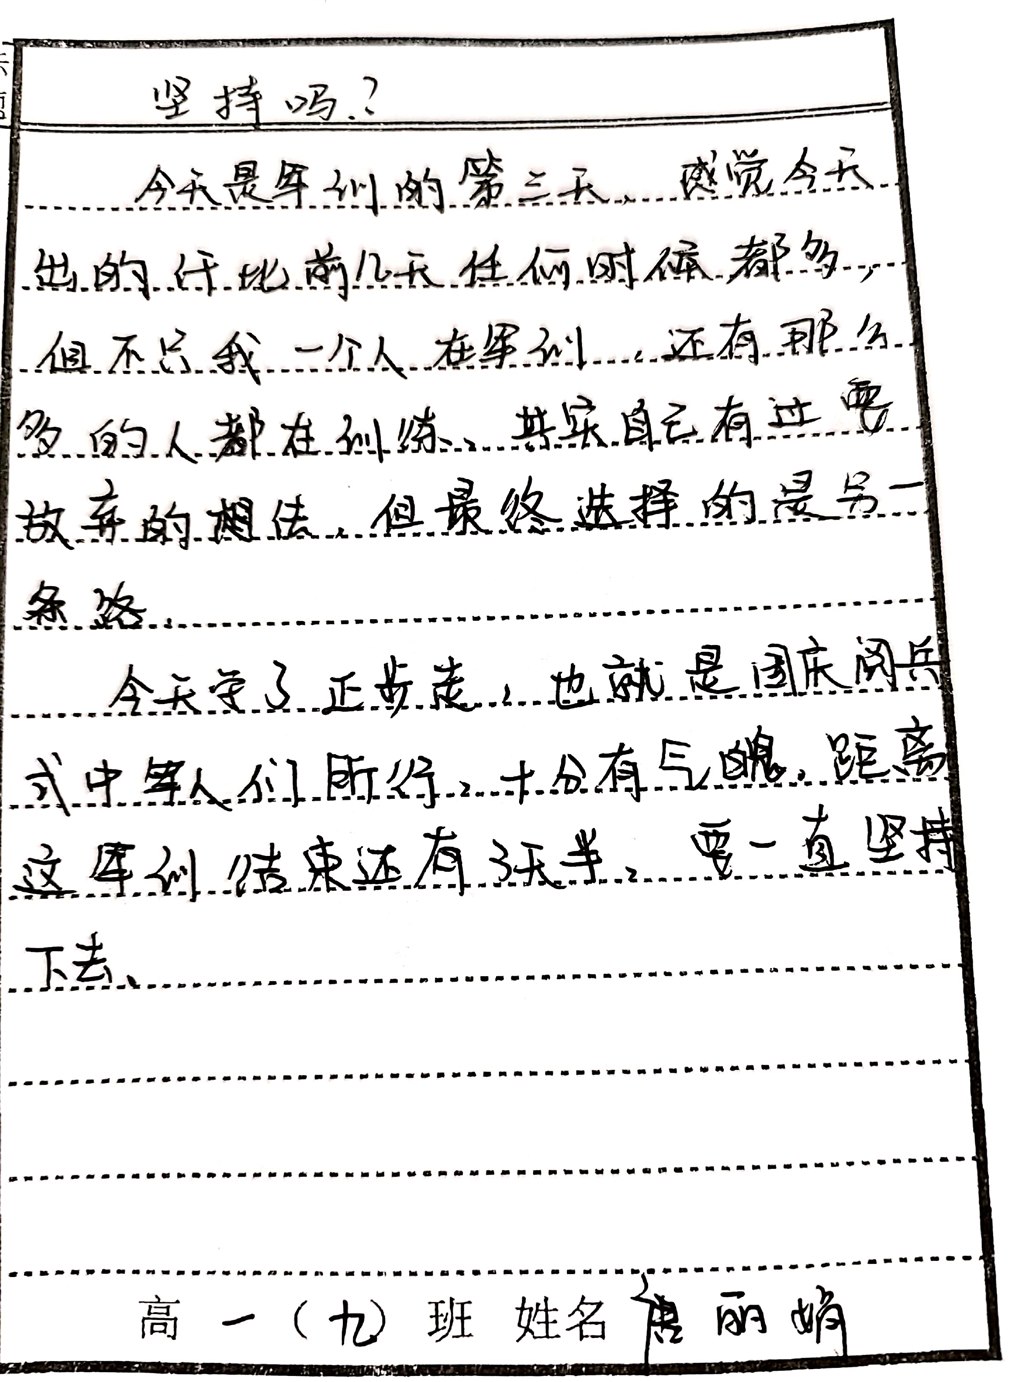 坚持吗？
今天是军训的第三天、感觉今天
出的汗比前几天任何时候都多，
但不只我一个人在军训、还有那么
多的人都在训练、其实自己有过要
放弃的想法、但最终选择的是另一
条路、
今天学了正步走，也就是国庆阅兵
式中军人们所行、十分有气魄、距离
这军训结束还有3天半、要一直坚持
下去、
高一（九）班 姓名 唐丽娟